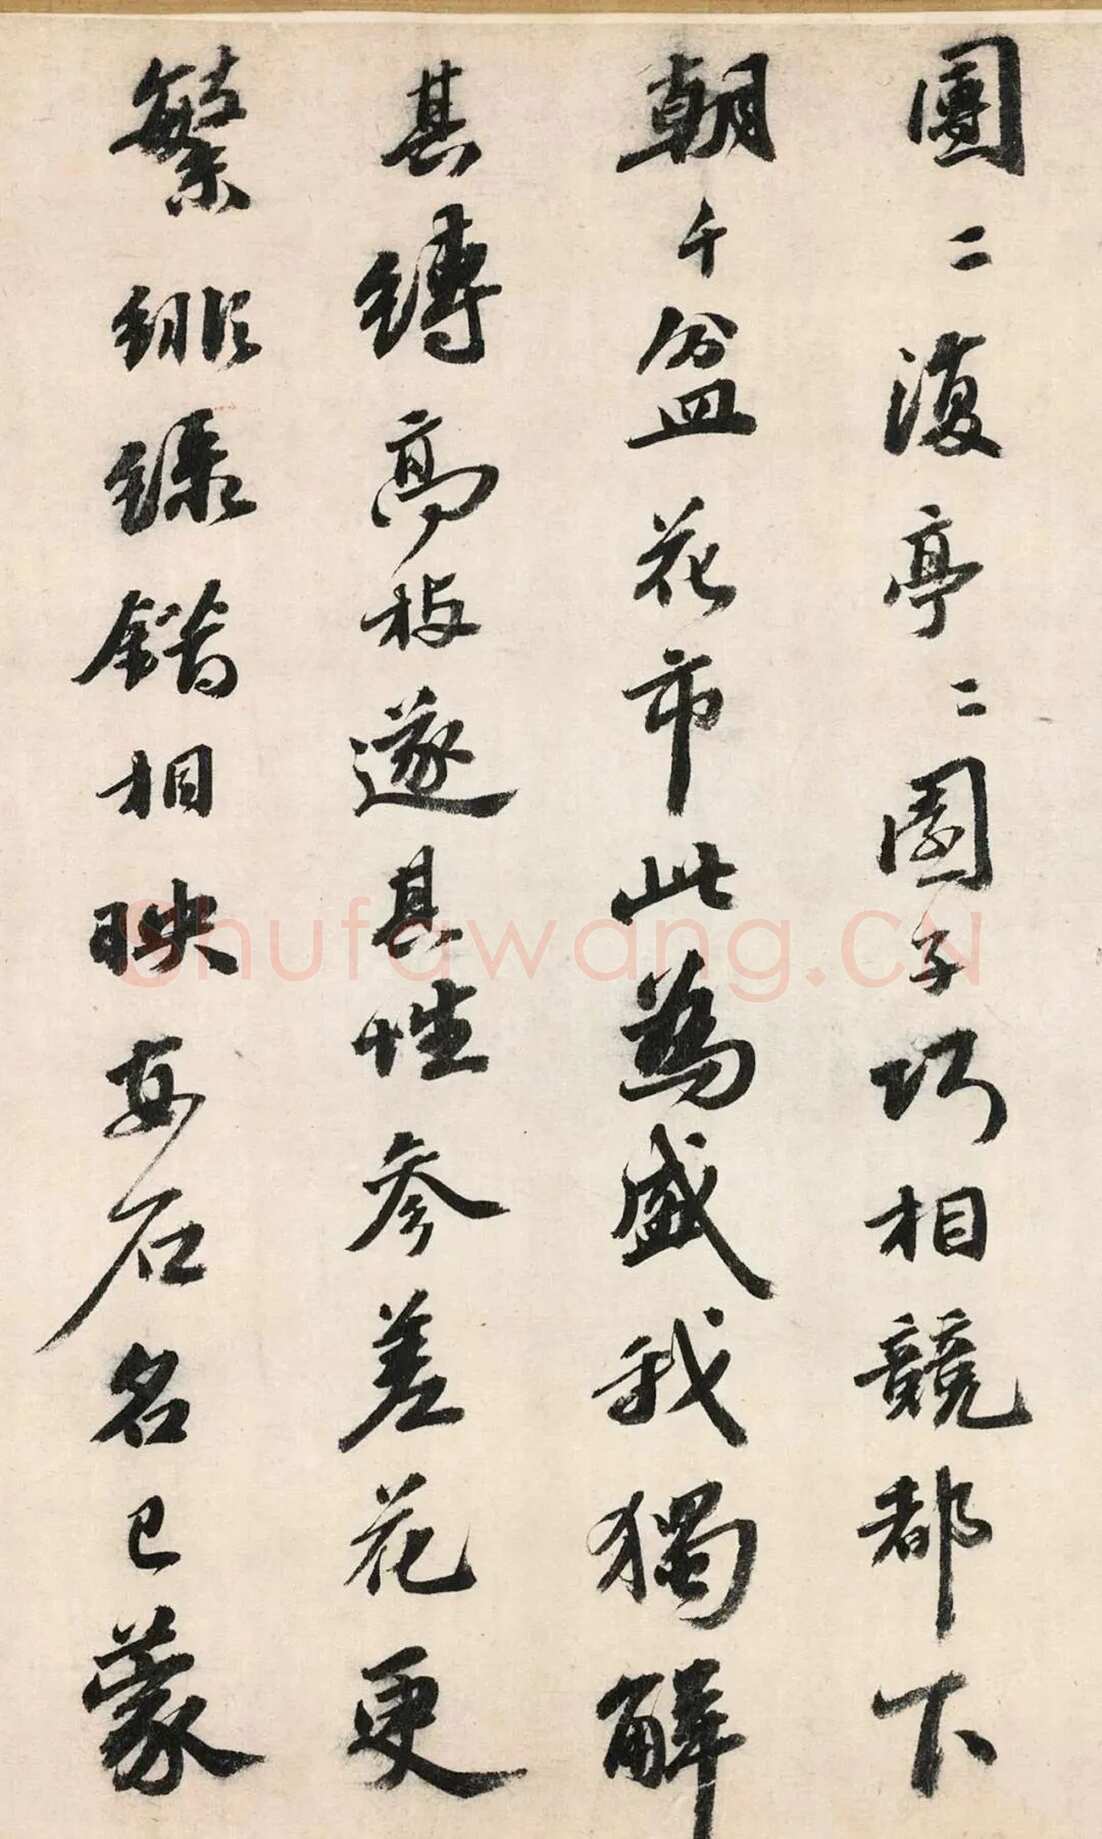 團二復亭二園子巧相競都下
朝千盆花市此為盛我獨解
其縛高枝遂其性參差花更
繁緋綠錯相映安石名已蒙
Shufawang.CN